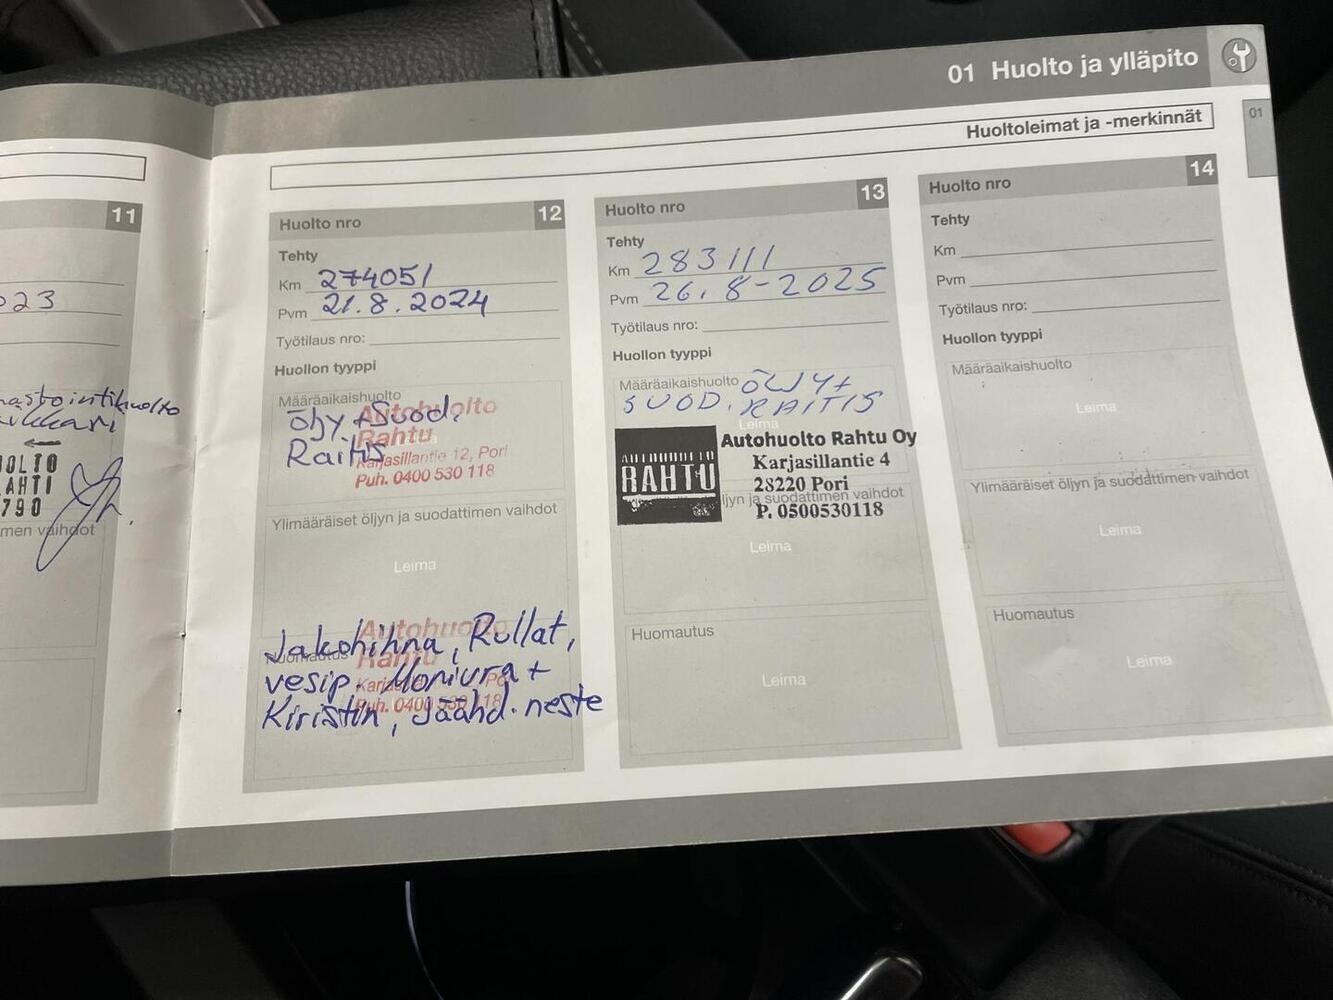 01 Huolto ja ylläpito
Huoltoleimat ja -merkinnät
01
11
023
huolto
OLTO
AHTI
790
men vaihdot
Huolto nro 12
Tehty
Km 274051
Pvm 21.8.2024
Työtilaus nro:
Huollon tyyppi
Määräaikaishuolto
Öljy + Suod.
Raitis
Autohuolto
Rahtu
Karjasillantie 12, Pori
Puh. 0400 530 118
Ylimääräiset öljyn ja suodattimen vaihdot
Leima
Huomautus
Jakohihna, Rullat,
vesip. Moniura +
Kiristin, Jäähd. neste
Autohuolto
Rahtu
Puh. 0400 530 118
Huolto nro 13
Tehty
Km 283111
Pvm 26.8-2025
Työtilaus nro:
Huollon tyyppi
Määräaikaishuolto ÖLJY+
SUOD. RAITIS
Leima
AUTOHUOLTO
RAHTU
Autohuolto Rahtu Oy
Karjasillantie 4
28220 Pori
P. 0500530118
ljyn ja suodattimen vaihdot
Leima
Huomautus
Leima
Huolto nro 14
Tehty
Km
Pvm
Työtilaus nro:
Huollon tyyppi
Määräaikaishuolto
Leima
Ylimääräiset öljyn ja suodattimen vaihdot
Leima
Huomautus
Leima